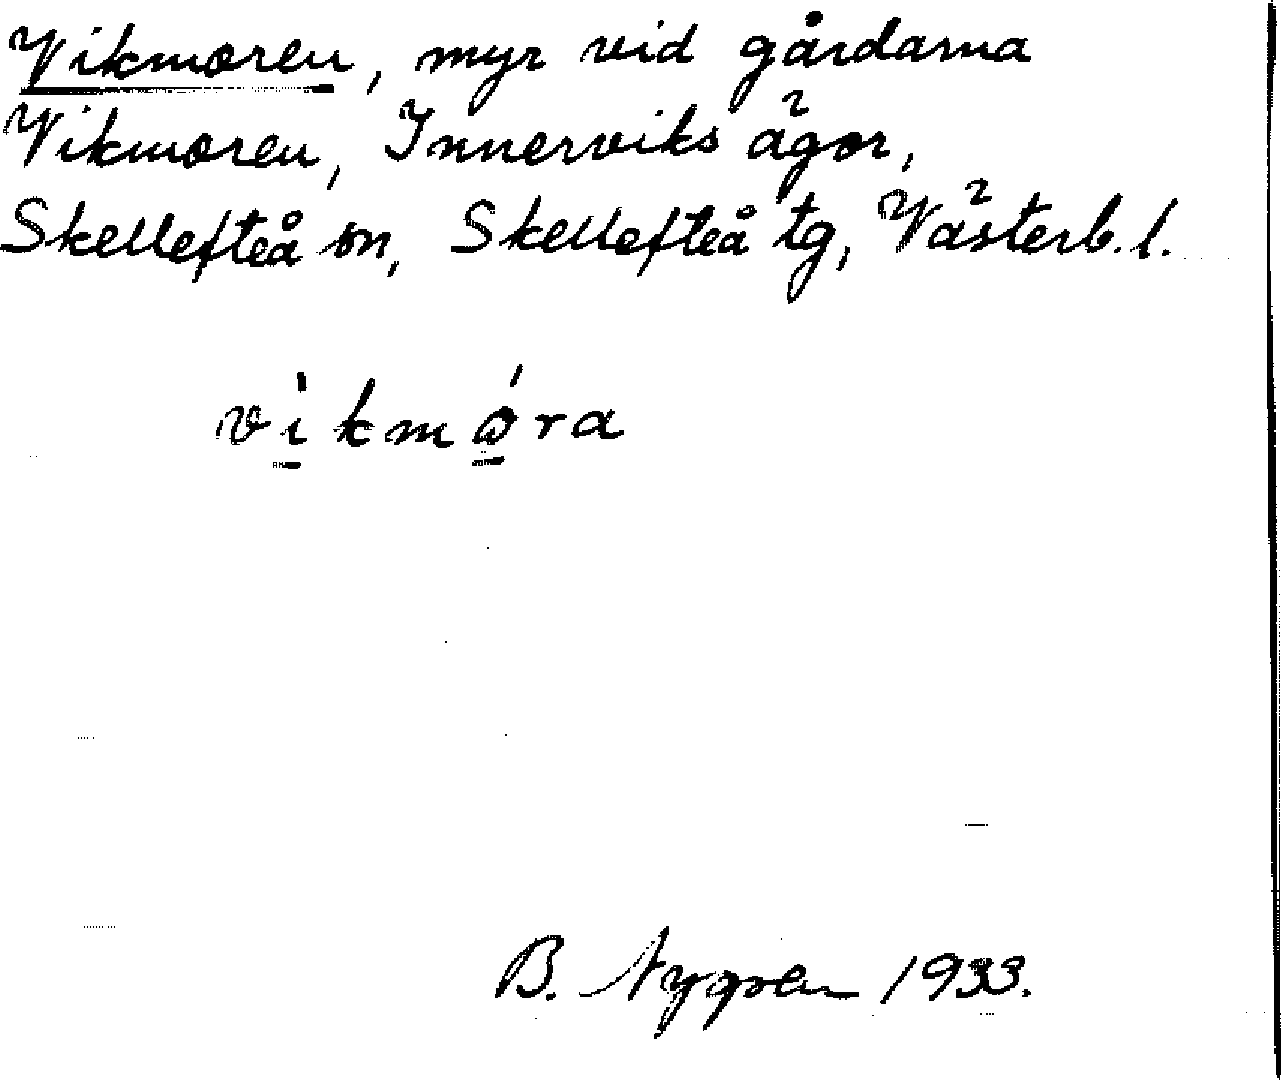 Vikmoren, myr vid gårdarna
Vikmoren, Innerviks ägor,
Skellefteå sn, Skellefteå tg, Västerb. l.
vìkmǿra
B. Nygren 1933.